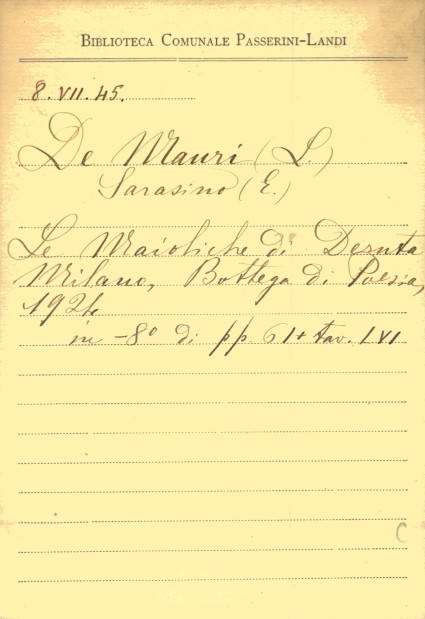 BIBLIOTECA COMUNALE PASSERINI-LANDI
8.VII.45.
De Mauri (L.)
Sarasino (E.)
Le Maioliche di Deruta
Milano, Bottega di Poesia,
1924
in -8° di pp. 61 + tav. LVI
C